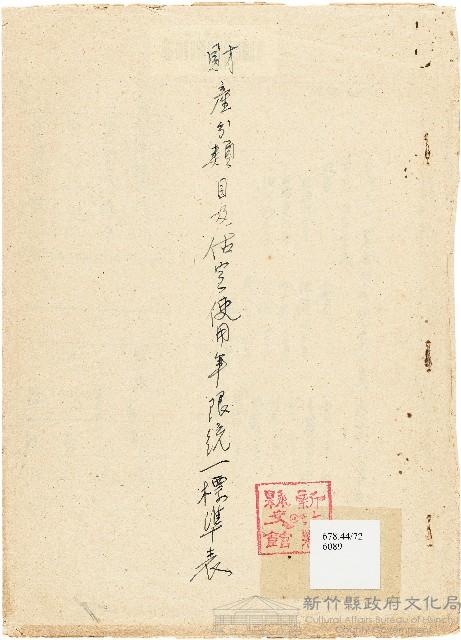 財產分類目及估定使用年限統一標準表
新竹縣文獻館
678.44/72
6089
新竹縣政府文化局
Cultural Affairs Bureau of Hsinchu County Government